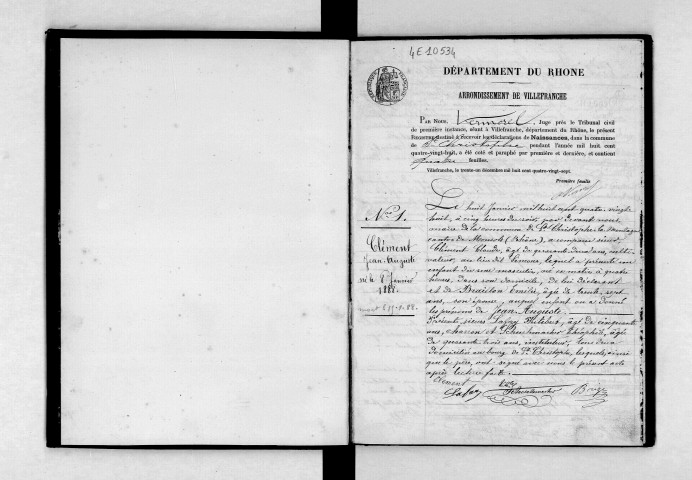 4E10534
DÉPARTEMENT DU RHONE
ARRONDISSEMENT DE VILLEFRANCHE
PAR NOUS, Vermorel, Juge près le Tribunal civil
de première instance, séant à Villefranche, département du Rhône, le présent
REGISTRE destiné à recevoir les déclarations de Naissances, dans la commune
de St Christophe pendant l'année mil huit cent
quatre-vingt-huit, a été coté et paraphé par première et dernière, et contient
quatre feuilles.
Villefranche, le trente-un décembre mil huit cent quatre-vingt-sept.
Première feuille
No 1.
Clément
Jean Auguste
né le 8 Janvier
1888.
Le huit Janvier mil huit cent quatre-vingt
huit, à cinq heures du soir, par devant nous
maire de la commune de St Christophe la Montagne
canton de Monsols (Rhône), a comparu sieur
Clément Claude, âgé de quarante deux ans, culti-
vateur, au lieu dit, lequel a présenté un
enfant du sexe masculin, né ce matin à quatre
heures, dans son domicile, de lui déclarant
et de Emilie, âgée de trente sept
ans, son épouse, auquel enfant on a donné
les prénoms de Jean Auguste.
Présents, sieurs Lafay Philibert, âgé de cinquante
ans, charron et Schuhmacher Théophile, âgé
de quarante trois ans, instituteur, tous deux
domiciliés au bourg de St Christophe, lesquels, ainsi
que le père, ont signé avec nous le présent acte
après lecture faite.
Clément
Lafay Schuhmacher